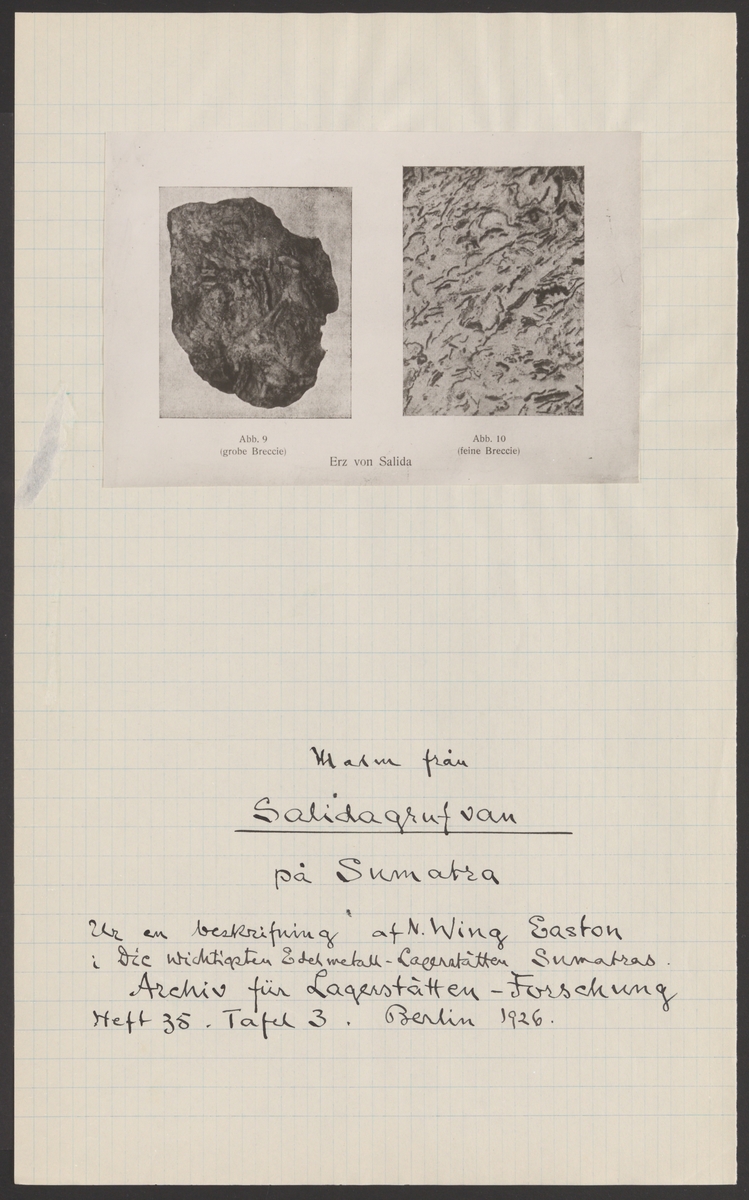 Abb. 9
(grobe Breccie)
Abb. 10
(feine Breccie)
Erz von Salida
Malm från
Salidagrufvan
på Sumatra
Ur en beskrifning af N. Wing Easton
i Die wichtigsten Edelmetall-Lagerstätten Sumatras.
Archiv für Lagerstätten-Forschung
Heft 35. Tafel 3. Berlin 1926.